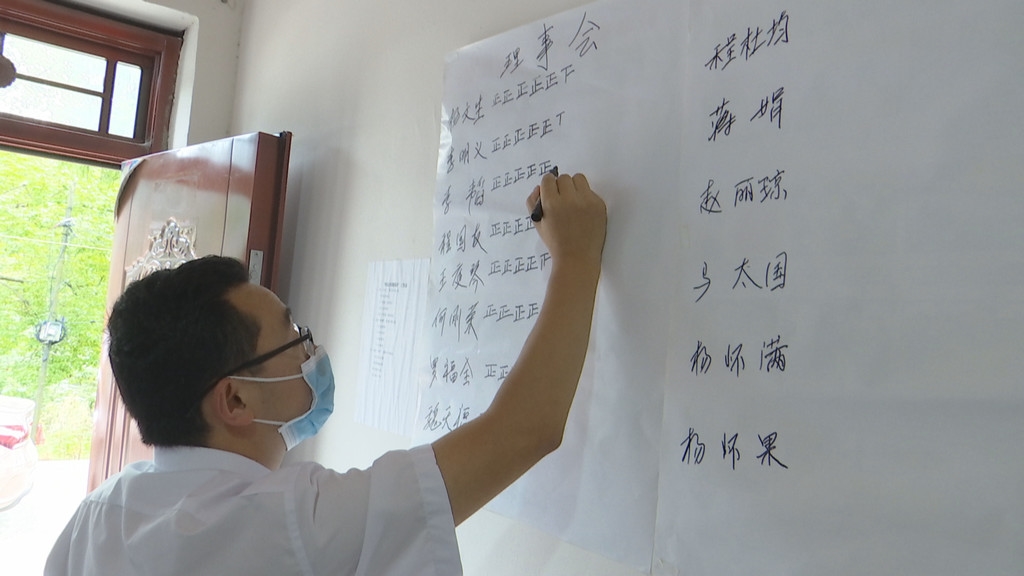 理事会
文生 正正正正正下
李明义 正正正正正丅
李韬 正正正正正
程国友 正正正
王夜琴 正正正正
何刚荣 正正正正
罗福全 正
魏天恒
程杜均
蒋娟
赵丽琼
马太国
杨师满
杨师果